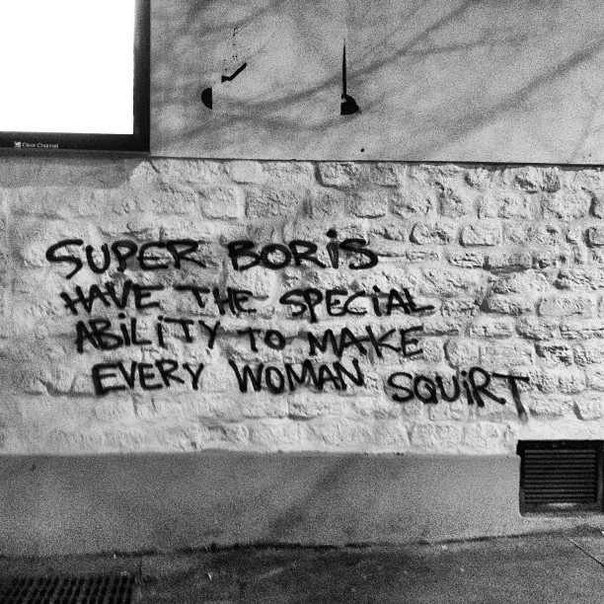 Clear Channel
SUPER BORiS
HAVE THE SPECiAL
ABiLiTY TO MAKE
EVERY WOMAN SQUiRT